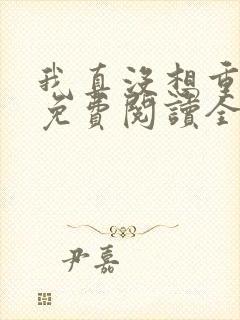 我真没想重
免費閱讀全
尹嘉